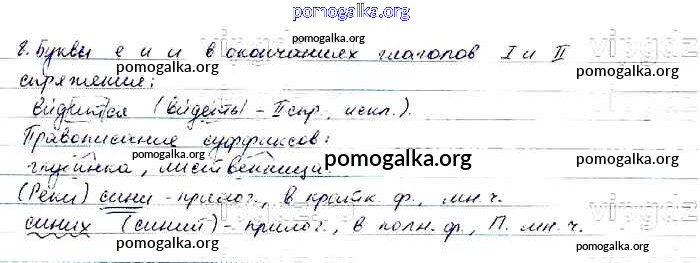 pomogalka.org
8. Буквы е и и в окончаниях глаголов I и II
vipgdz
pomogalka.org pomogalka.org
спряжения:
видится (видеть – II спр., искл.).
pomogalka.org pomogalka.org
Правописание суффиксов:
глубинка, лиственница.
pomogalka.org pomogalka.org
(Реки) сини – прилог., в кратк. ф., мн. ч.
vipgdz
синих (синий) – прилог., в полн. ф., П. мн. ч.
pomogalka.org pomogalka.org